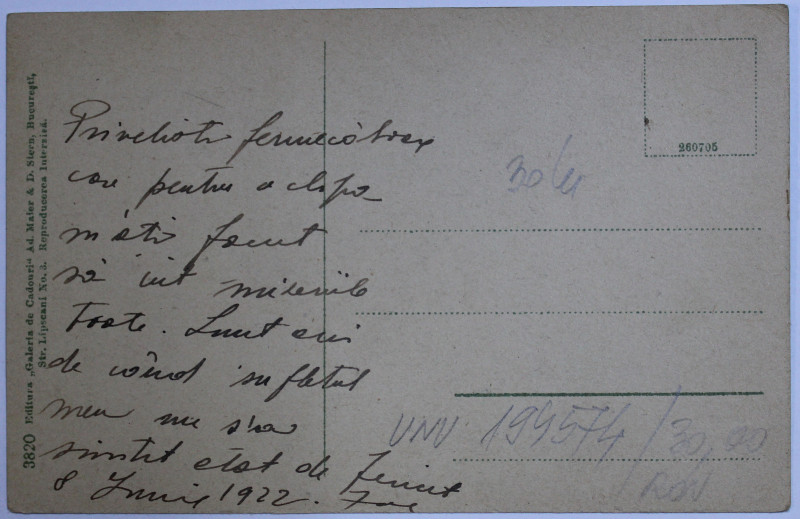 Priveliști fermecătoare
care pentru o clipă
m'ați făcut
să uit mizeriile
toate. Sunt ani
de când sufletul
meu nu s'a
simțit atât de fericit
8 Iunie 1922.
30 lei
260705
UNV 199574 / 30,00
RON
3820 Editura „Galeria de Cadouri" Ad. Maier & D. Stern, București,
Str. Lipscani No. 3. Reproducerea interzisă.